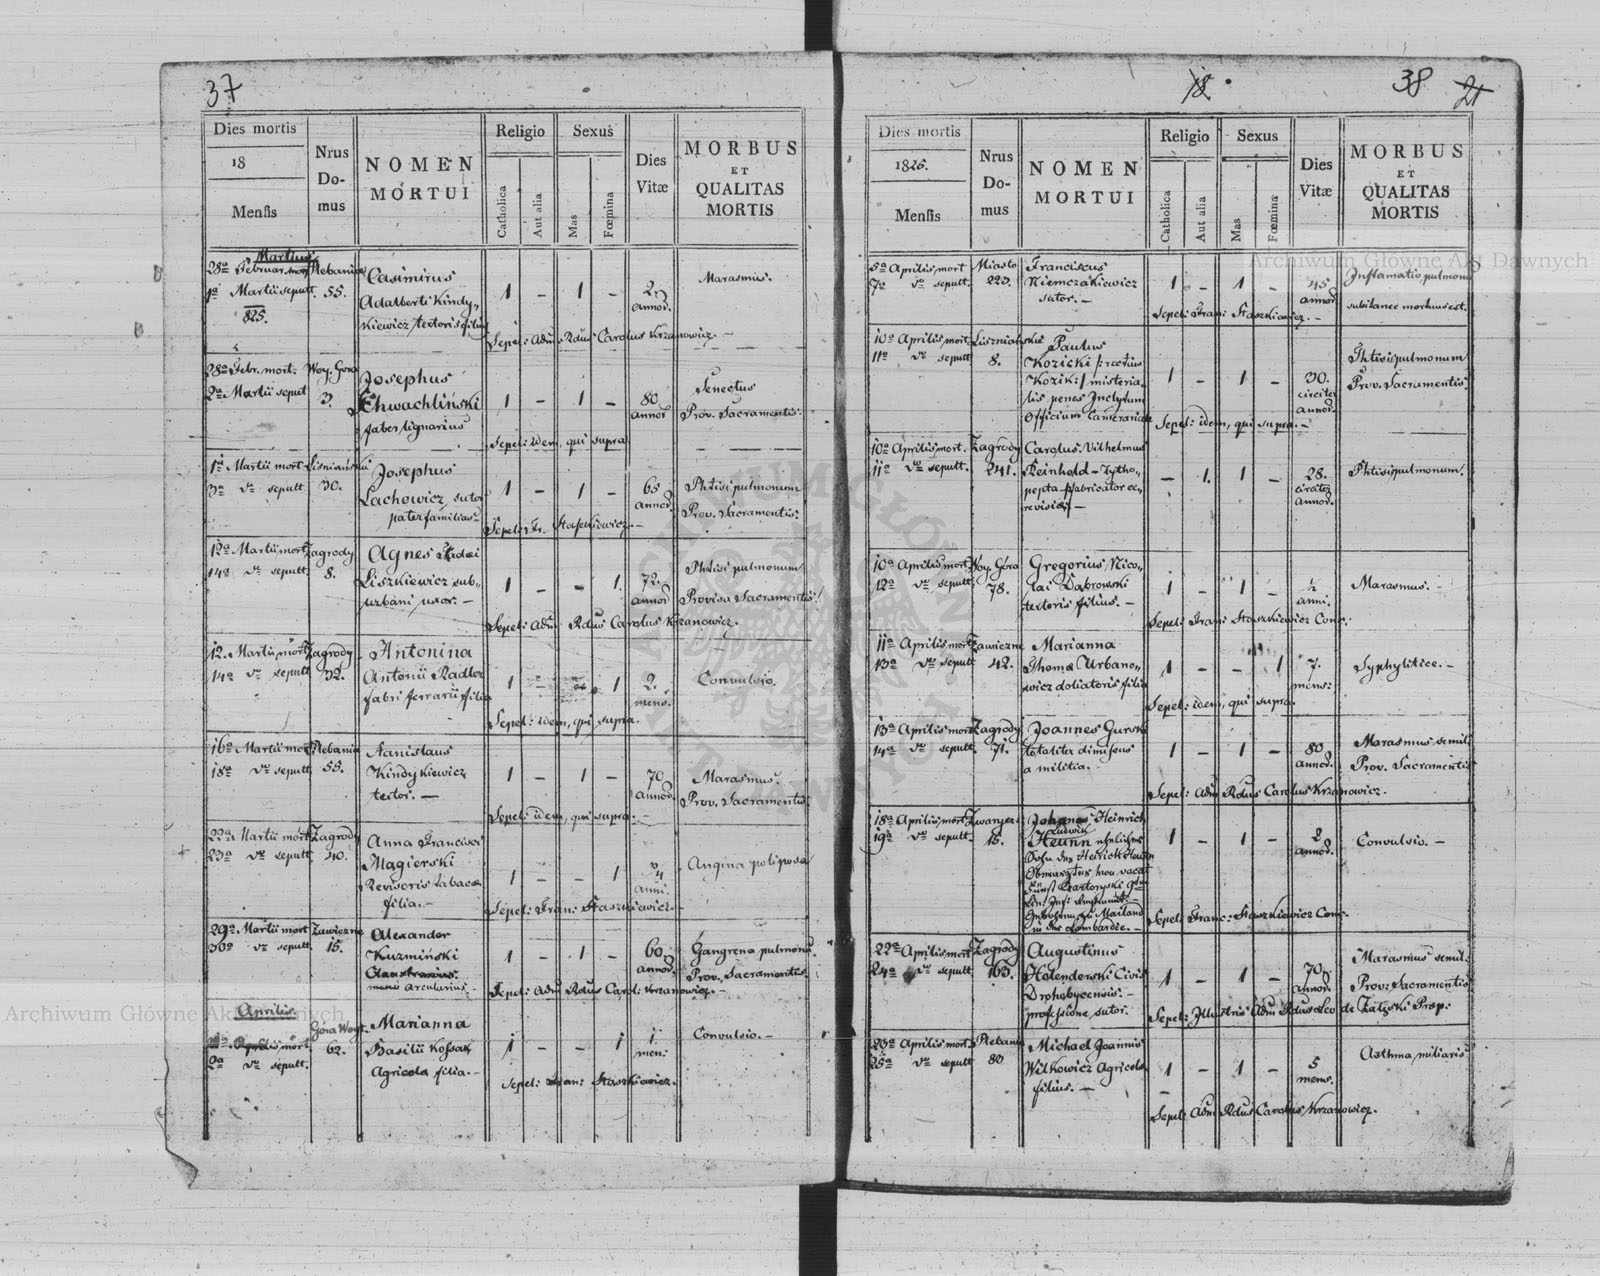 37
Dies mortis
18
Mensis
Nrus
Do-
mus
NOMEN
MORTUI
Religio
Catholica
Aut alia
Sexus
Mas
Fœmina
Dies
Vitæ
MORBUS
ET
QUALITAS
MORTIS
Martius
28ª Februar. mort. Plebania
1ª Martii sepult. 55.
825.
Casimirus
Adalberti Kindy„
kiewicz textoris filius
1 – 1 –
2.
annor.
Marasmus.
Sepel: Adm Rdus Carolus Krzanowicz. –
28ª Febr. mort. Woy. Gora
2ª Martii sepult 3.
Josephus
Chwachliński
faber lignarius
1 – 1 –
80
annor
Senectus
Prov. Sacramentis.
Sepel: idem, qui supra.
1ª Martii mort
3ª do sepult. 30.
Josephus
Lachowicz sutor
paterfamilias –
1 – 1 –
65
annor.
Phtisi pulmonum
Prov. Sacramentis:
Sepel: Fr. Staszkiewicz. –
12ª Martii mort Zagrody
14ª do sepult. 8.
Agnes
Liszkiewicz sub„
urbani uxor. –
1 – – 1.
72.
annor
Phtisi pulmonum
Provisa Sacramentis.
Sepel: Adm Rdus Carolus Krzanowicz.
12. Martii mort Zagrody
14ª do sepult. 32.
Antonina
Antonii Radler
fabri ferrarii filia
1 – – 1
2.
mens.
Convulsio.
Sepel: idem, qui supra.
16ª Martii mort Plebania
18ª do sepult. 55.
Stanislaus
Kindykiewicz
textor. –
1 – 1 –
70
annor.
Marasmus.
Prov. Sacramentis
Sepel: idem, qui supra. –
22ª Martii mort Zagrody
23ª do sepult. 40.
Anna Francisci
Magierski
Revisoris tabacæ
filia. –
1 – – 1
4
anni.
Angina poliposa
Sepel: Fran: Staszkiewicz. –
29ª Martii mort Zawiezne
30ª do sepult. 15.
Alexander
Kuzmiński
arcularius. –
1 – 1 –
60
annor.
Gangrena pulmonu
Prov. Sacramentis.
Sepel: Adm Rdus Carol: Krzanowicz. –
Aprilis
Góra Woyt.
1ª Aprilis mort. 62.
2ª do sepult.
Marianna
Basilii Kossak
Agricola filia. –
1 – – 1
1.
men:
Convulsio. –
Sepel: Fran: Staszkiewicz.
18
38
21
Dies mortis
1825.
Mensis
Nrus
Do-
mus
NOMEN
MORTUI
Religio
Catholica
Aut alia
Sexus
Mas
Fœmina
Dies
Vitæ
MORBUS
ET
QUALITAS
MORTIS
5ª Aprilis mort Miasto
7ª do sepult. 223.
Franciscus
Niemczakiewicz
sutor. –
1 – 1 –
45
annor
Inflamatio pulmonu
subitanee mortuus est.
Sepel: Fran: Staszkiewicz. –
10ª Aprilis mort. Liszniańskie
11ª do sepult 8.
Paulus
Kozicki /: rectius
Kozik :/ misteria„
lis penes Inclytum
Officium Camerarium
1 – 1 –
30.
circiter
annor.
Phtisi pulmonum
Prov. Sacramentis.
Sepel: idem, qui supra. –
10ª Aprilis mort. Zagrody
11ª do sepult. 241.
Carolus Vilhelmus
Reinhold – Zytho„
pepta – fabricator ce„
revisiæ –
– 1. 1 –
28.
circiter
annor.
Phtisi pulmonum.
10ª Aprilis mort. Woy. Góra
12ª do sepult. 78.
Gregorius Nico„
lai Dąbrowski
textoris filius. –
1 – 1 –
½
anni.
Marasmus. –
Sepel: Fran: Staszkiewicz Coop:
11ª Aprilis mort Zawiezne
13ª do sepult 42.
Marianna
Thomæ Urbano„
wicz doliatoris filia
1 – – 1
7.
mens:
Syphylitice. –
Sepel: idem, qui supra.
13ª Aprilis mort Zagrody
14ª do sepult. 71.
Joannes Jurski
totaliter dimissus
a militia. –
1 – 1 –
80
annor.
Marasmus senil:
Prov. Sacramentis
Sepel: Adm Rdus Carolus Krzanowicz.
18ª Aprilis mort
19ª do sepult. 15.
Johannes Heinrich
Ludwik
Heunn ehnlicher
Sohn des
Geboren zu Mailand
in der Lombardie. –
1 – 1 –
2
annor.
Convulsio. –
Sepel: Franc: Staszkiewicz Coop.
22ª Aprilis mort Zagrody
24ª do sepult 163.
Augustinus
Holenderski Civis
Drohobycensis. –
professione sutor. –
1 – 1 –
70
annor.
Marasmus senil:
Prov: Sacramentis
Sepel: Illustris Adm Rdus Leo de Zatęski Præp:
23ª Aprilis mort. Plebania
25ª do sepult 80
Michael Joannis
Witkowicz Agricolæ
filius. –
1 – 1 –
5
mens.
Asthma miliaris
Sepel: Adm Rdus Carolus Krzanowicz.
Archiwum Główne Akt Dawnych
Archiwum Główne Akt Dawnych